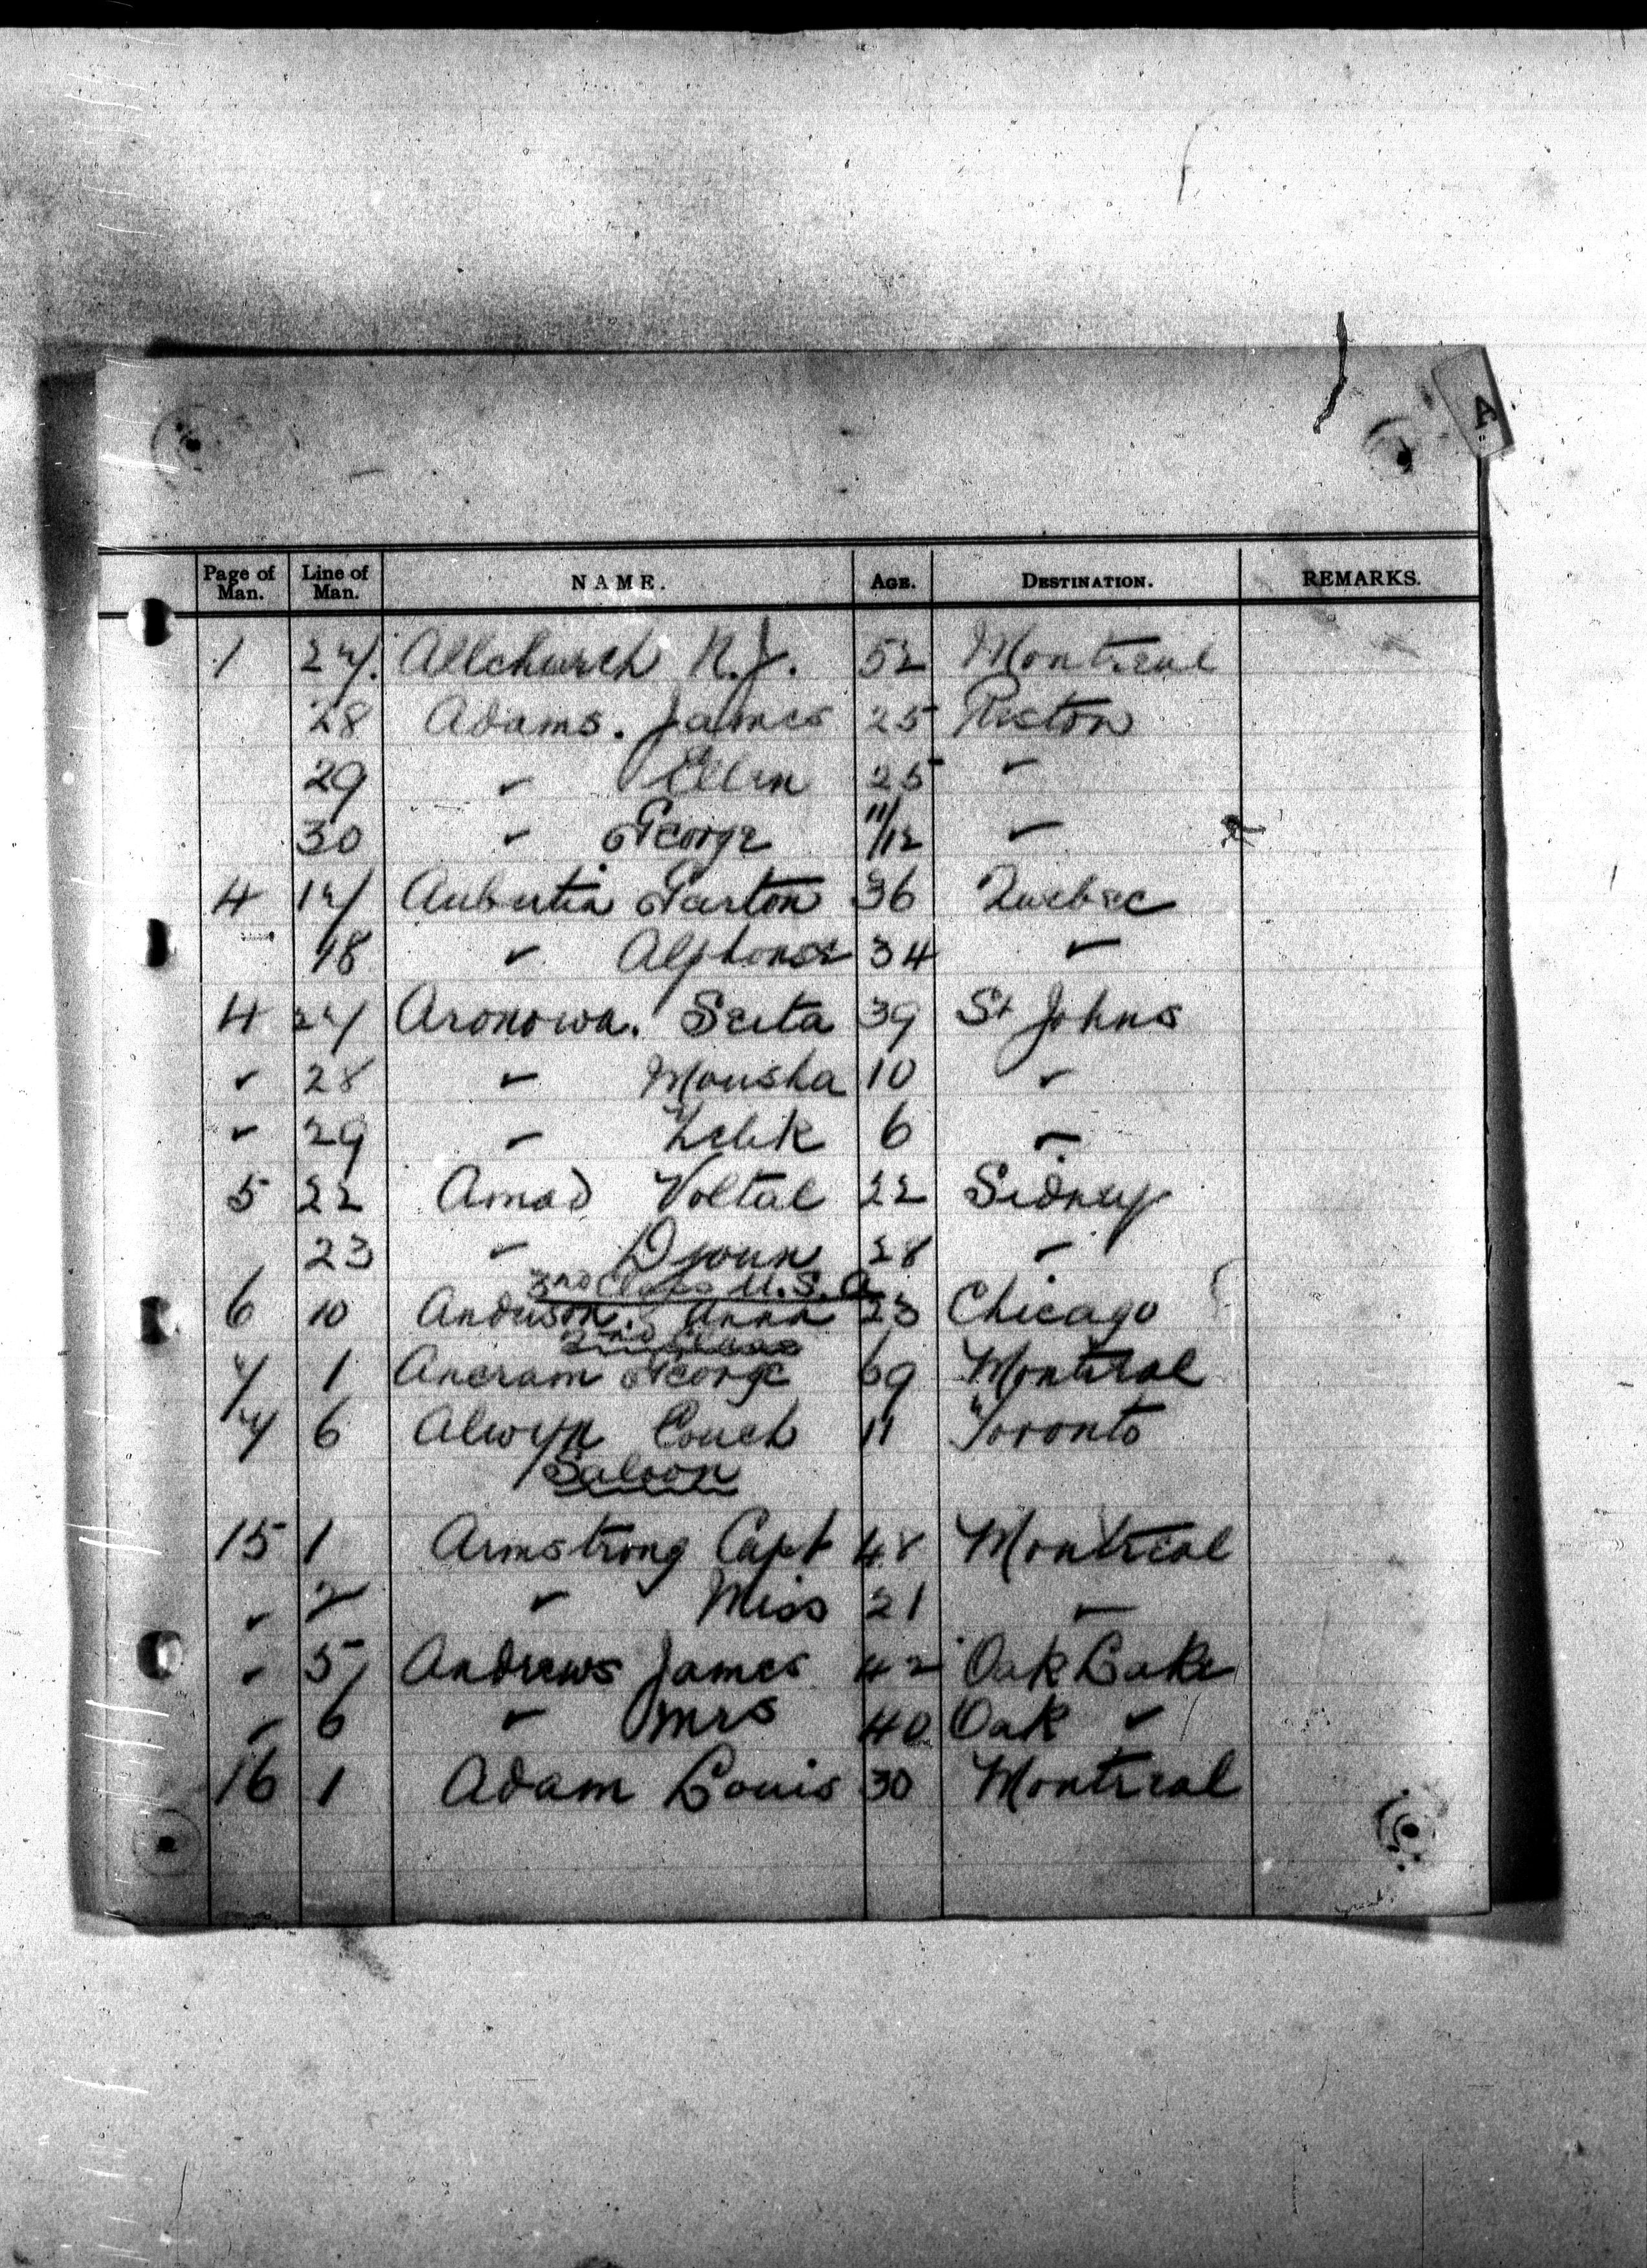 A
Page of Man. Line of Man. NAME. AGE. DESTINATION. REMARKS.
1 27. Allchurch N.J. 52 Montreal
28 Adams. James 25 Picton
29 " Ellen 25 "
30 " George 11/12 "
4 17 Aubertin Gaston 36 Quebec
18 " Alphonse 34 "
4 27 Aronowa. Seita 39 St Johns
" 28 " Mousha 10 "
" 29 " Zelik 6 "
5 22 Amad Voltal 22 Sidney
23 " Djoun 28 "
2nd Class U.S.A
6 10 Anderson. Anna 23 Chicago
2nd Class
7 1 Ancram George 69 Montreal
7 6 Alwyn Couch 11 Toronto
Saloon
15 1 Armstrong Capt 48 Montreal
" 2 " Miss 21 "
" 5 Andrews James 42 Oak Lake
" 6 " Mrs 40 Oak "
16 1 Adam Louis 30 Montreal